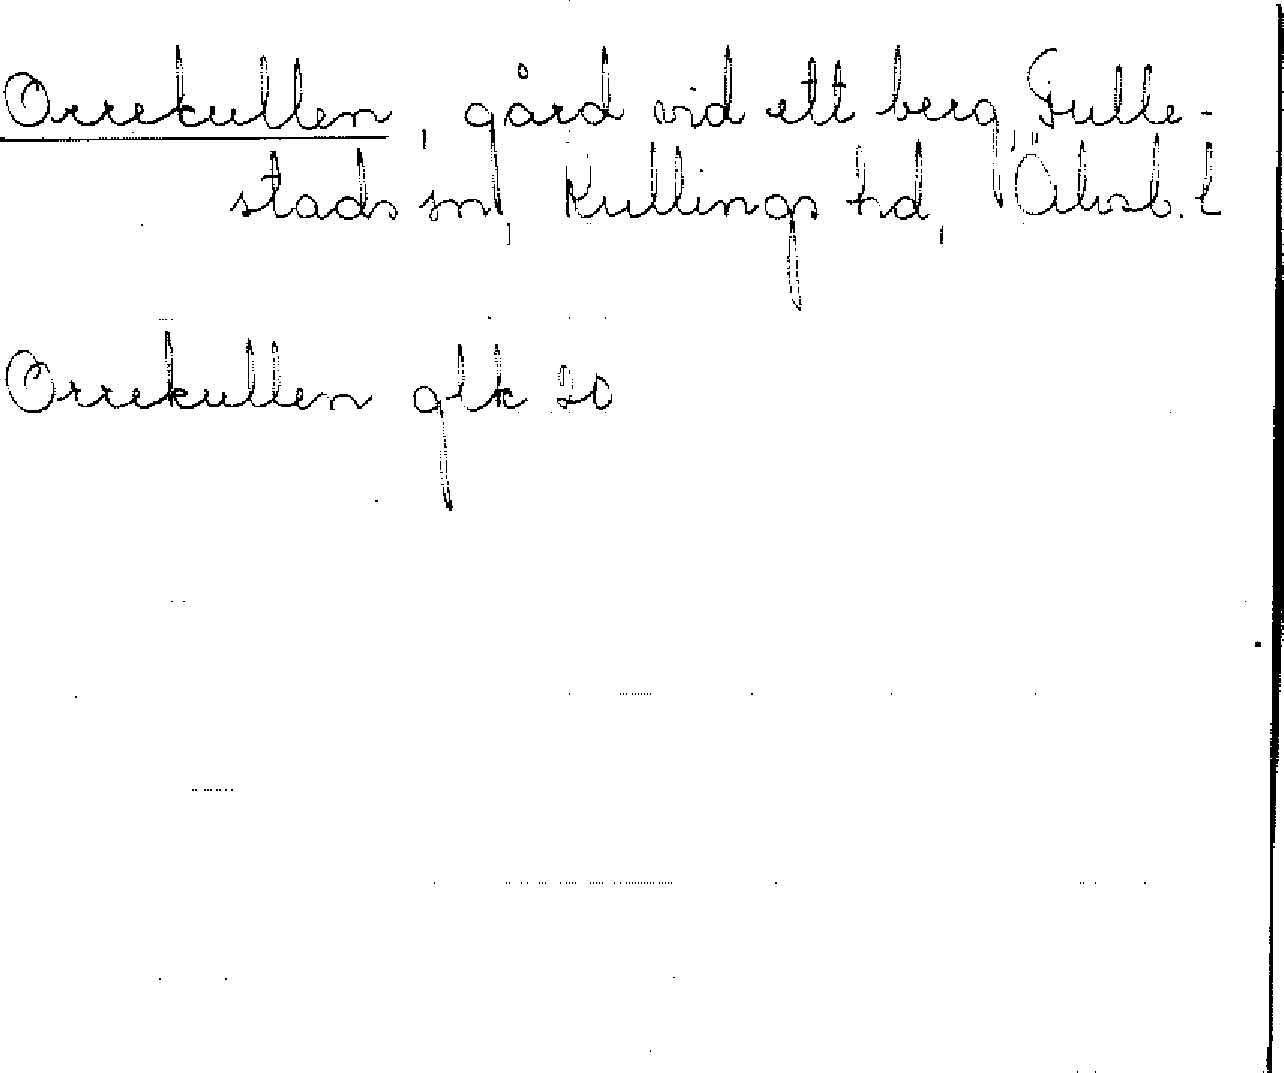 Orrekullen, gård vid ett berg, Fulle-
stads sn, Kullings hd, Älvsb. l
Orrekullen glk 20